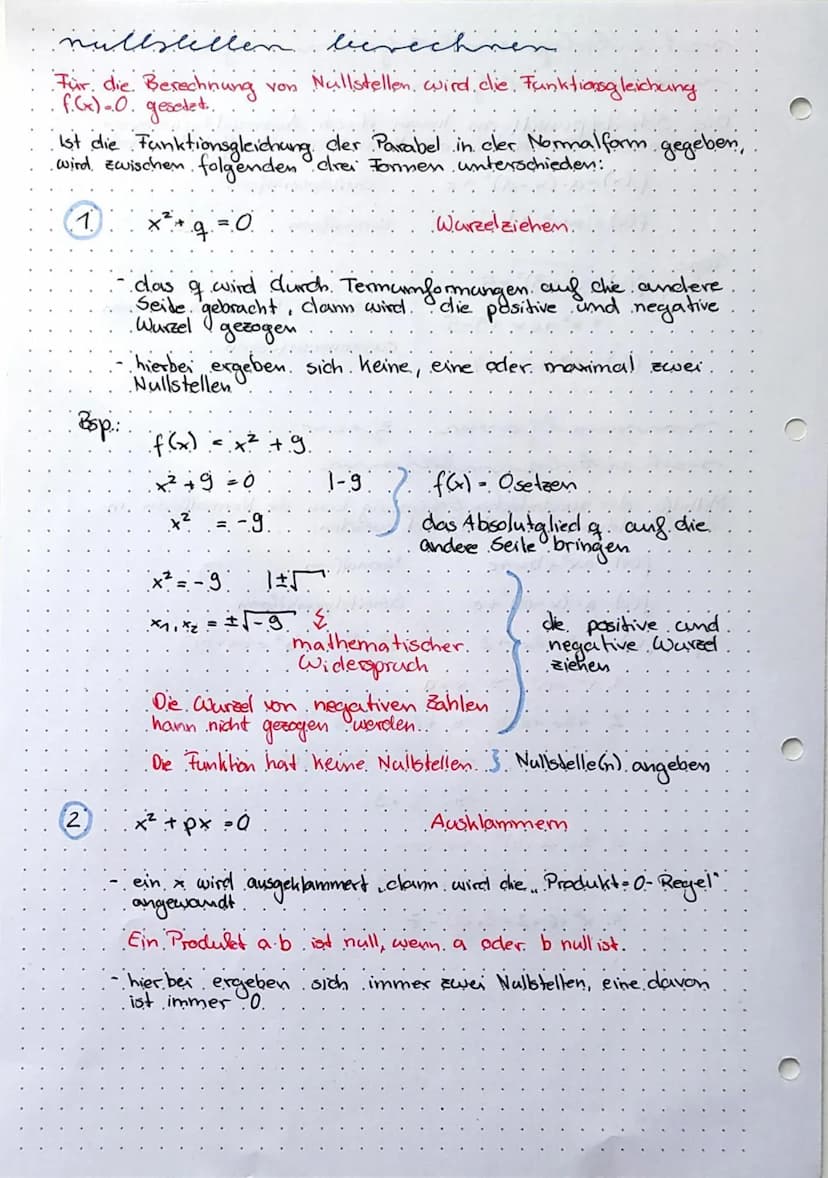 nullstellen berechnen
Für die Berechnung von Nullstellen wird die Funktionsgleichung
f(x)=0 gesetzt.
Ist die Funktionsgleichung der Parabel in der Normalform gegeben,
wird zwischen folgenden drei Formen unterschieden:
1 x² + q = 0 Wurzelziehen
- das q wird durch Termumformungen auf die andere
Seite gebracht, dann wird die positive und negative
Wurzel gezogen
- hierbei ergeben sich keine, eine oder maximal zwei
Nullstellen
Bsp.:
f(x) = x² + 9
x² + 9 = 0 |-9 } f(x) = 0 setzen
x² = -9 das Absolutglied q auf die
andere Seite bringen
x² = -9 |±√
x₁, x₂ = ±√-9 ↯ die positive und
mathematischer negative Wurzel
Widerspruch ziehen
Die Wurzel von negativen Zahlen
kann nicht gezogen werden.
Die Funktion hat keine Nullstellen. } Nullstelle(n) angeben
2 x² + px = 0 Ausklammern
- ein x wird ausgeklammert, dann wird die „Produkt=0-Regel"
angewandt
Ein Produkt a·b ist null, wenn a oder b null ist.
- hierbei ergeben sich immer zwei Nullstellen, eine davon
ist immer 0.